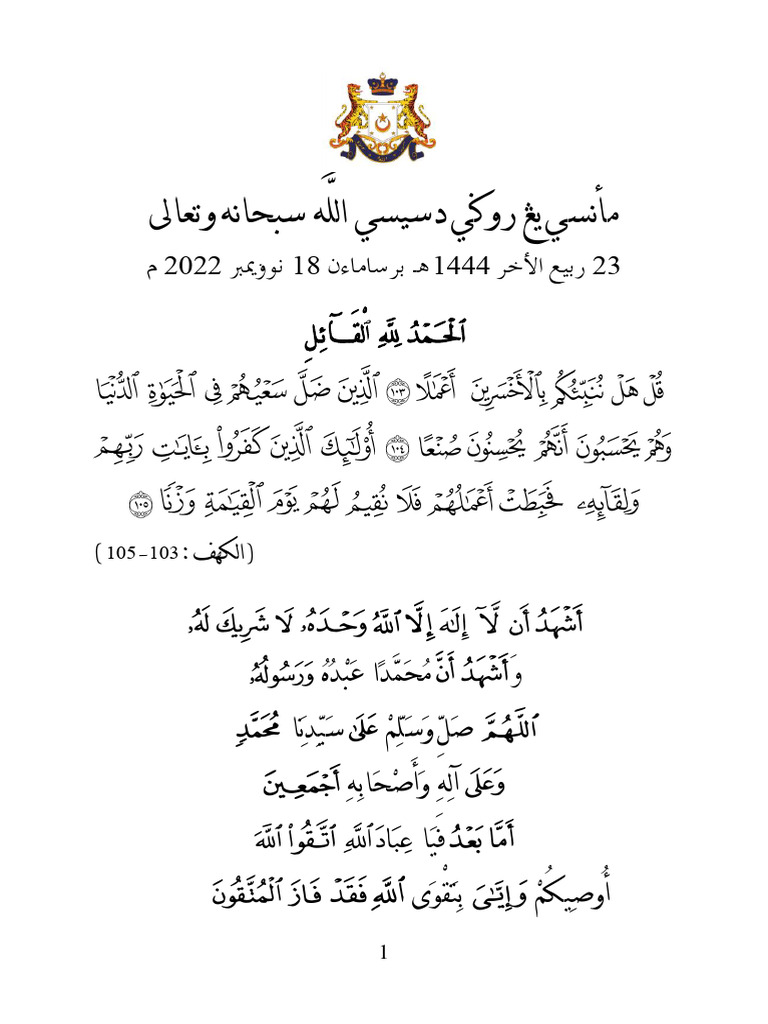 مأنسي يڠ روݢي دسيسي اللّٰه سبحانه وتعالى
23 ربيع الأخر 1444هـ برساماءن 18 نوۏيمبر 2022 م
ٱلْحَمْدُ لِلَّهِ ٱلْقَآئِلِ
قُلْ هَلْ نُنَبِّئُكُم بِٱلْأَخْسَرِينَ أَعْمَٰلًا ١٠٣ ٱلَّذِينَ ضَلَّ سَعْيُهُمْ فِى ٱلْحَيَوٰةِ ٱلدُّنْيَا
وَهُمْ يَحْسَبُونَ أَنَّهُمْ يُحْسِنُونَ صُنْعًا ١٠٤ أُو۟لَٰٓئِكَ ٱلَّذِينَ كَفَرُوا۟ بِـَٔايَٰتِ رَبِّهِمْ
وَلِقَآئِهِۦ فَحَبِطَتْ أَعْمَٰلُهُمْ فَلَا نُقِيمُ لَهُمْ يَوْمَ ٱلْقِيَٰمَةِ وَزْنًا ١٠٥
(الكهف: 103-105)
أَشْهَدُ أَن لَّآ إِلَٰهَ إِلَّا ٱللَّهُ وَحْدَهُۥ لَا شَرِيكَ لَهُۥ
وَأَشْهَدُ أَنَّ مُحَمَّدًا عَبْدُهُ وَرَسُولُهُۥ
ٱللَّهُمَّ صَلِّ وَسَلِّمْ عَلَىٰ سَيِّدِنَا مُحَمَّدٍ
وَعَلَى آلِهِ وَأَصْحَابِهِ أَجْمَعِينَ
أَمَّا بَعْدُ فَيَا عِبَادَ ٱللَّهِ ٱتَّقُوا۟ ٱللَّهَ
أُوصِيكُمْ وَإِيَّٰىَ بِتَقْوَى ٱللَّهِ فَقَدْ فَازَ ٱلْمُتَّقُونَ
1